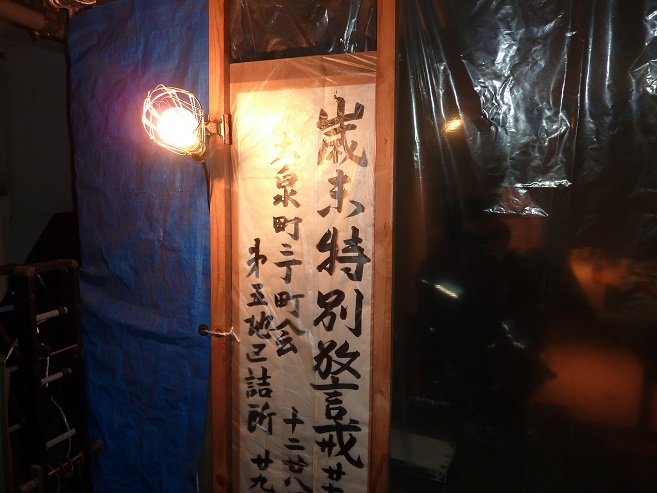 歳末特別警戒 廿
大泉町三丁町会 十二廿八
第五地区詰所 廿九